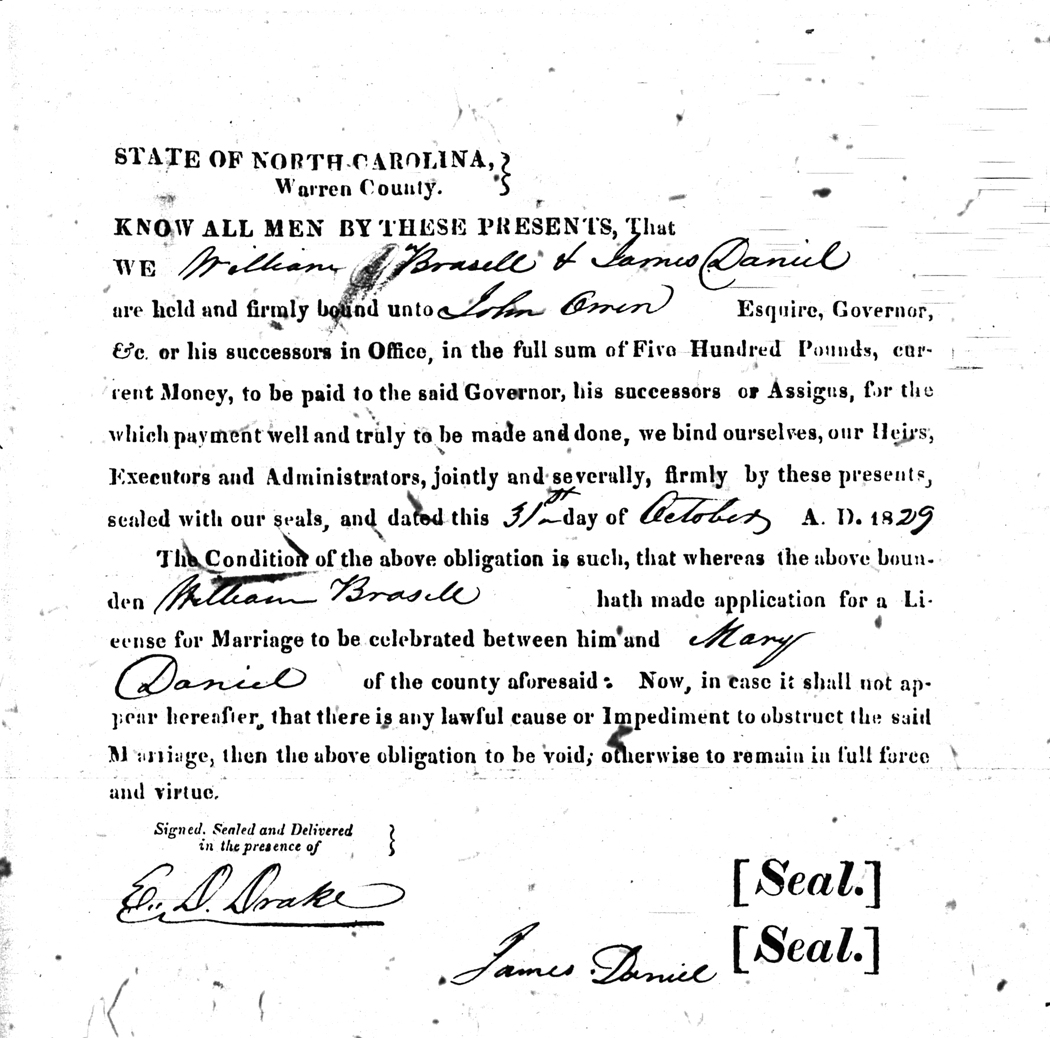 STATE OF NORTH-CAROLINA, }
Warren County.
KNOW ALL MEN BY THESE PRESENTS, That
WE William Brasell & James Daniel
are held and firmly bound unto John Owen Esquire, Governor,
&c. or his successors in Office, in the full sum of Five Hundred Pounds, cur-
rent Money, to be paid to the said Governor, his successors or Assigns, for the
which payment well and truly to be made and done, we bind ourselves, our Heirs,
Executors and Administrators, jointly and severally, firmly by these presents,
sealed with our seals, and dated this 31st day of October A. D. 1829
The Condition of the above obligation is such, that whereas the above boun-
den William Brasell hath made application for a Li-
eense for Marriage to be celebrated between him and Mary
Daniel of the county aforesaid: Now, in case it shall not ap-
pear hereafter, that there is any lawful cause or Impediment to obstruct the said
Marriage, then the above obligation to be void; otherwise to remain in full force
and virtue.
Signed, Sealed and Delivered }
in the presence of
E. D. Drake
[Seal.]
James Daniel [Seal.]